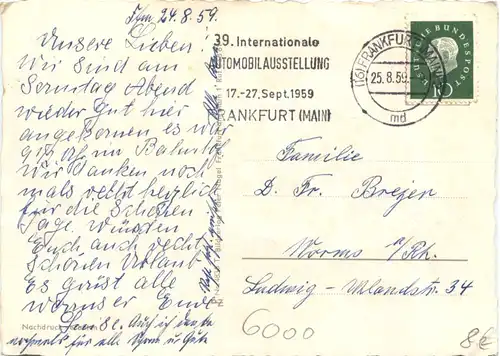 Ffm 24.8.59.
Unsere Lieben!
Wir sind am
Sonntag Abend
wieder gut hier
angekommen es war
im Bahnhof
Wir danken noch
mals recht herzlich
für die Schönen
Tage. wünschen
Euch auch recht
Schönen Urlaub
Es grüst alle
Auch ich danke
nochmals für alle
u. Gute
Nachdruck
39. Internationale
AUTOMOBILAUSSTELLUNG
17.-27. Sept. 1959
FRANKFURT (MAIN)
(16) FRANKFURT (MAIN)
25.8.59
md
DEUTSCHE BUNDESPOST
10
Familie
D. Fr. Brejer
Worms a/Rh.
Ludwig-Uhlandstr. 34
6000
8€